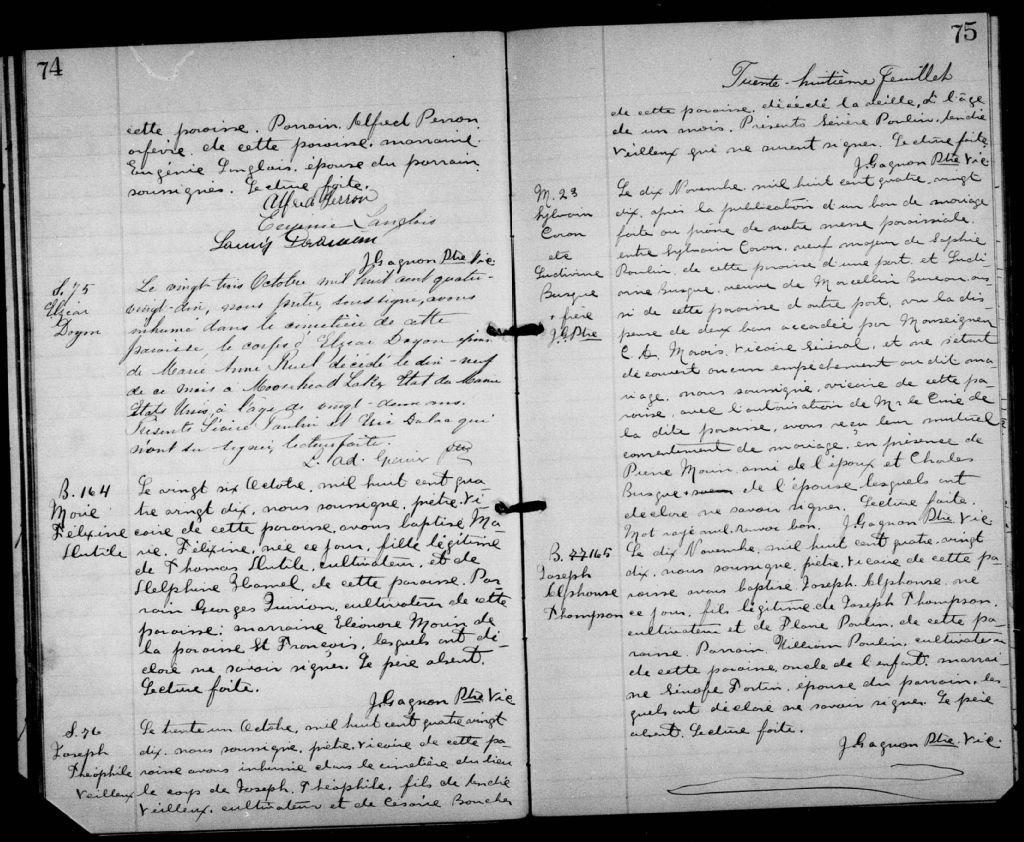 74
cette paroisse. Parrain, Alfred Perron
orfèvre de cette paroisse, marraine
Eugénie Langlois, épouse du parrain
soussignés. Lecture faite.
Alfred Perron
Eugénie Langlois
J. Gagnon Ptre Vic
S. 75
Elzéar
Doyon
Le vingt trois Octobre mil huit cent quatre-
vingt-dix, nous prêtre, soussigné, avons
inhumé dans le cimetière de cette
paroisse, le corps d'Elzéar Doyon époux
de Marie Anne Ruel décédé le dix-neuf
de ce mois à Moosehead Lake, Etat du Maine
Etats Unis, à l'âge de vingt-deux ans.
Présents Poulin et qui
n'ont su signer, lecture faite.
L. Ad. Ptre
B. 164
Marie
Félixine
Mutile
Le vingt six Octobre, mil huit cent qua
tre vingt dix, nous soussigné, prêtre, Vi-
caire de cette paroisse, avons baptisé Ma
rie, Félixine, née ce jour, fille légitime
de Thomas Mutile, cultivateur, et de
Delphine Hamel, de cette paroisse. Par
rain Georges Quirion, cultivateur de cette
paroisse; marraine Eléonore Morin de
la paroisse St François, lesquels ont dé-
claré ne savoir signer. Le père absent.
Lecture faite.
J. Gagnon Ptre Vic
S. 76
Joseph
Théophile
Veilleux
Le trente un Octobre, mil huit cent quatre vingt
dix, nous soussigné, prêtre, Vicaire de cette pa-
roisse avons inhumé dans le cimetière du lieu
le corps de Joseph, Théophile, fils de André
Veilleux, cultivateur et de Césarie Boucher
75
Trente-huitième feuillet
de cette paroisse, décédé la veille, à l'âge
de un mois. Présents Sévère Poulin, André
Veilleux qui ne surent signer. Lecture faite
J. Gagnon Ptre Vic
M. 23
Sylvain
Caron
etc
Ludivine
Busque
+ frère
J.G. Ptre
Le dix Novembre, mil huit cent quatre, vingt
dix, après la publication d'un ban de mariage
faite au prône de notre messe paroissiale
entre Sylvain Caron, veuf majeur de Sophie
Poulin, de cette paroisse d'une part, et Ludi-
vine Busque, veuve de Marcellin Bureau, aus
si de cette paroisse d'autre part, vu la dis
pense de deux bans accordée par Monseigneur
C. A. Marois, Vicaire Général, et ne s'étant
découvert aucun empêchement au dit ma
riage, nous soussigné, vicaire de cette pa-
roisse, avec l'autorisation de Mr le Curé de
la dite paroisse, avons reçu leur mutuel
consentement de mariage, en présence de
Pierre Morin, ami de l'époux et Charles
Busque, de l'épouse lesquels ont
déclaré ne savoir signer. Lecture faite
Mot rayé nul, renvoi bon. J. Gagnon Ptre Vic
B. 77 165
Joseph
Alphonse
Thompson
Le dix Novembre, mil huit cent quatre, vingt
dix, nous soussigné, prêtre, Vicaire de cette pa-
roisse avons baptisé Joseph, Alphonse, né
ce jour, fils légitime de Joseph Thompson,
cultivateur et de Poulin, de cette pa-
roisse. Parrain, William Poulin, cultivateur
de cette paroisse, oncle de l'enfant, marrai-
ne épouse du parrain, les
quels ont déclaré ne savoir signer. Le père
absent. Lecture faite.
J. Gagnon Ptre. Vic.